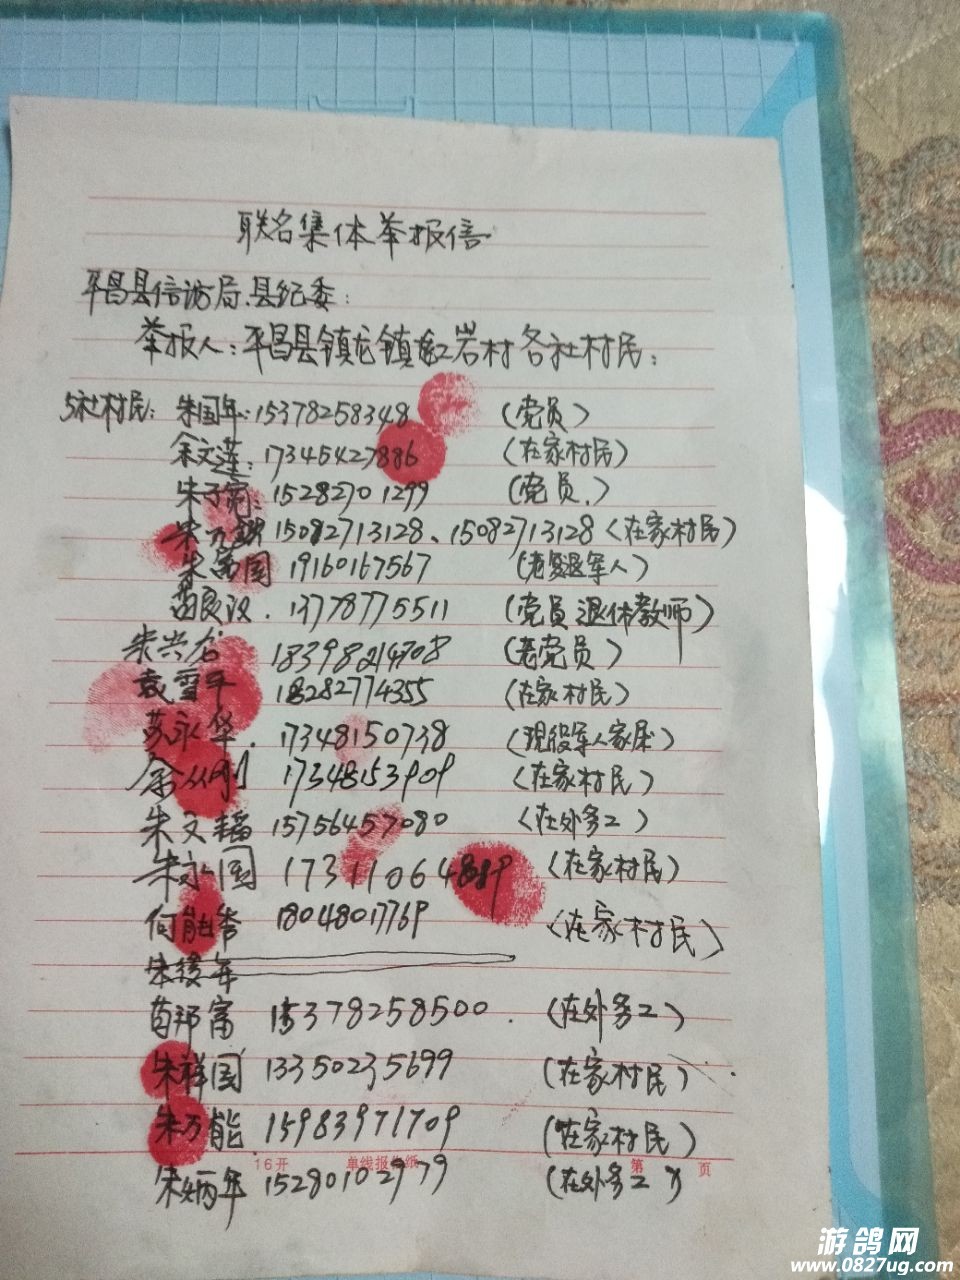 联名集体举报信
平昌县信访局.县纪委:
举报人:平昌县镇龙镇红岩村各社村民:
5社村民: 朱国年:15378258348 (党员)
余文莲:17345427886 (在家村民)
朱子 15282701299 (党员.)
朱万 15082713128、15082713128 (在家村民)
朱富国 19160167567 (老复退军人)
苗良汉. 13778775511 (党员退休教师)
朱兴 18398214708 (老党员)
袁雪平 18282774355 (在家村民)
苏永华. 17348150738 (现役军人家属)
余从刚 17348153909 (在家村民)
朱文韬 15756457080 (在外务工)
朱永国 17311064889 (在家村民)
何能 18048017769 (在家村民)
苟邦富 15378258500. (在外务工)
朱祥国 13350235699 (在家村民)
朱万能 15983971709 (在家村民)
16开 单线报告纸 第 页
朱炳年 15280102979 (在外务工)
游鸽网
www.0827ug.com